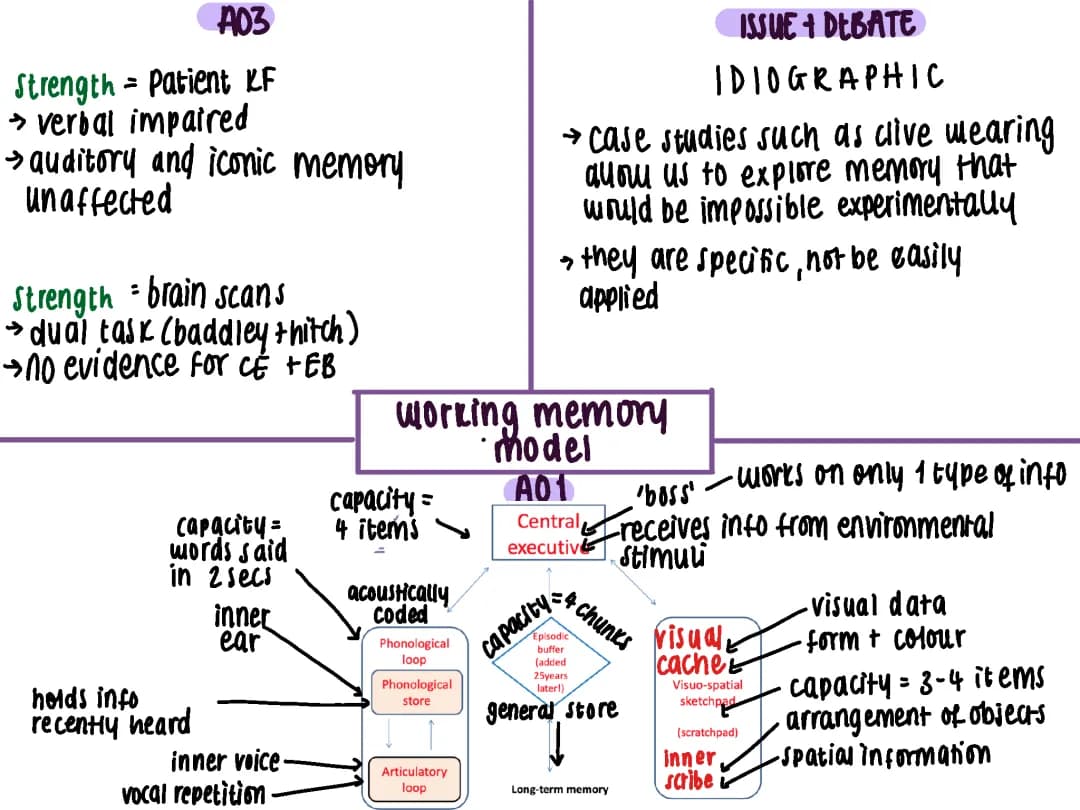 AO3
Strength = Patient KF
→ verbal impaired
→ auditory and iconic memory
unaffected
Strength = brain scans
→ dual task (baddley + hitch)
→ no evidence for CE + EB
ISSUE + DEBATE
IDIOGRAPHIC
→ case studies such as clive wearing
allow us to explore memory that
would be impossible experimentally
→ they are specific, not be easily
applied
working memory
model
AO1
capacity =
4 items
'boss'
works on only 1 type of info
receives info from environmental
stimuli
Central
executive
capacity =
words said
in 2 secs
inner
ear
holds info
recently heard
inner voice
vocal repetition
acoustically
coded
Phonological
loop
Phonological
store
Articulatory
loop
capacity = 4 chunks
Episodic
buffer
(added
25years
later!)
general store
Long-term memory
visual
cache
Visuo-spatial
sketchpad
(scratchpad)
inner
scribe
visual data
form + colour
capacity = 3-4 items
arrangement of objects
spatial information